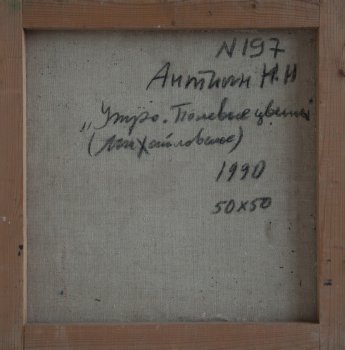 N197
Антипин Н.Н
„Утро. Полевые цветы
(Михайловское)
1990
50x50